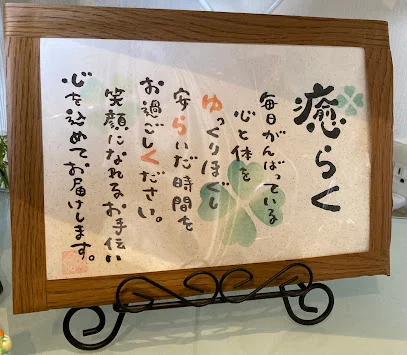 癒らく
毎日がんばっている
心と体を
ゆっくりほぐし
安らいだ時間を
お過ごしください。
笑顔になれるお手伝い
心を込めてお届けします。